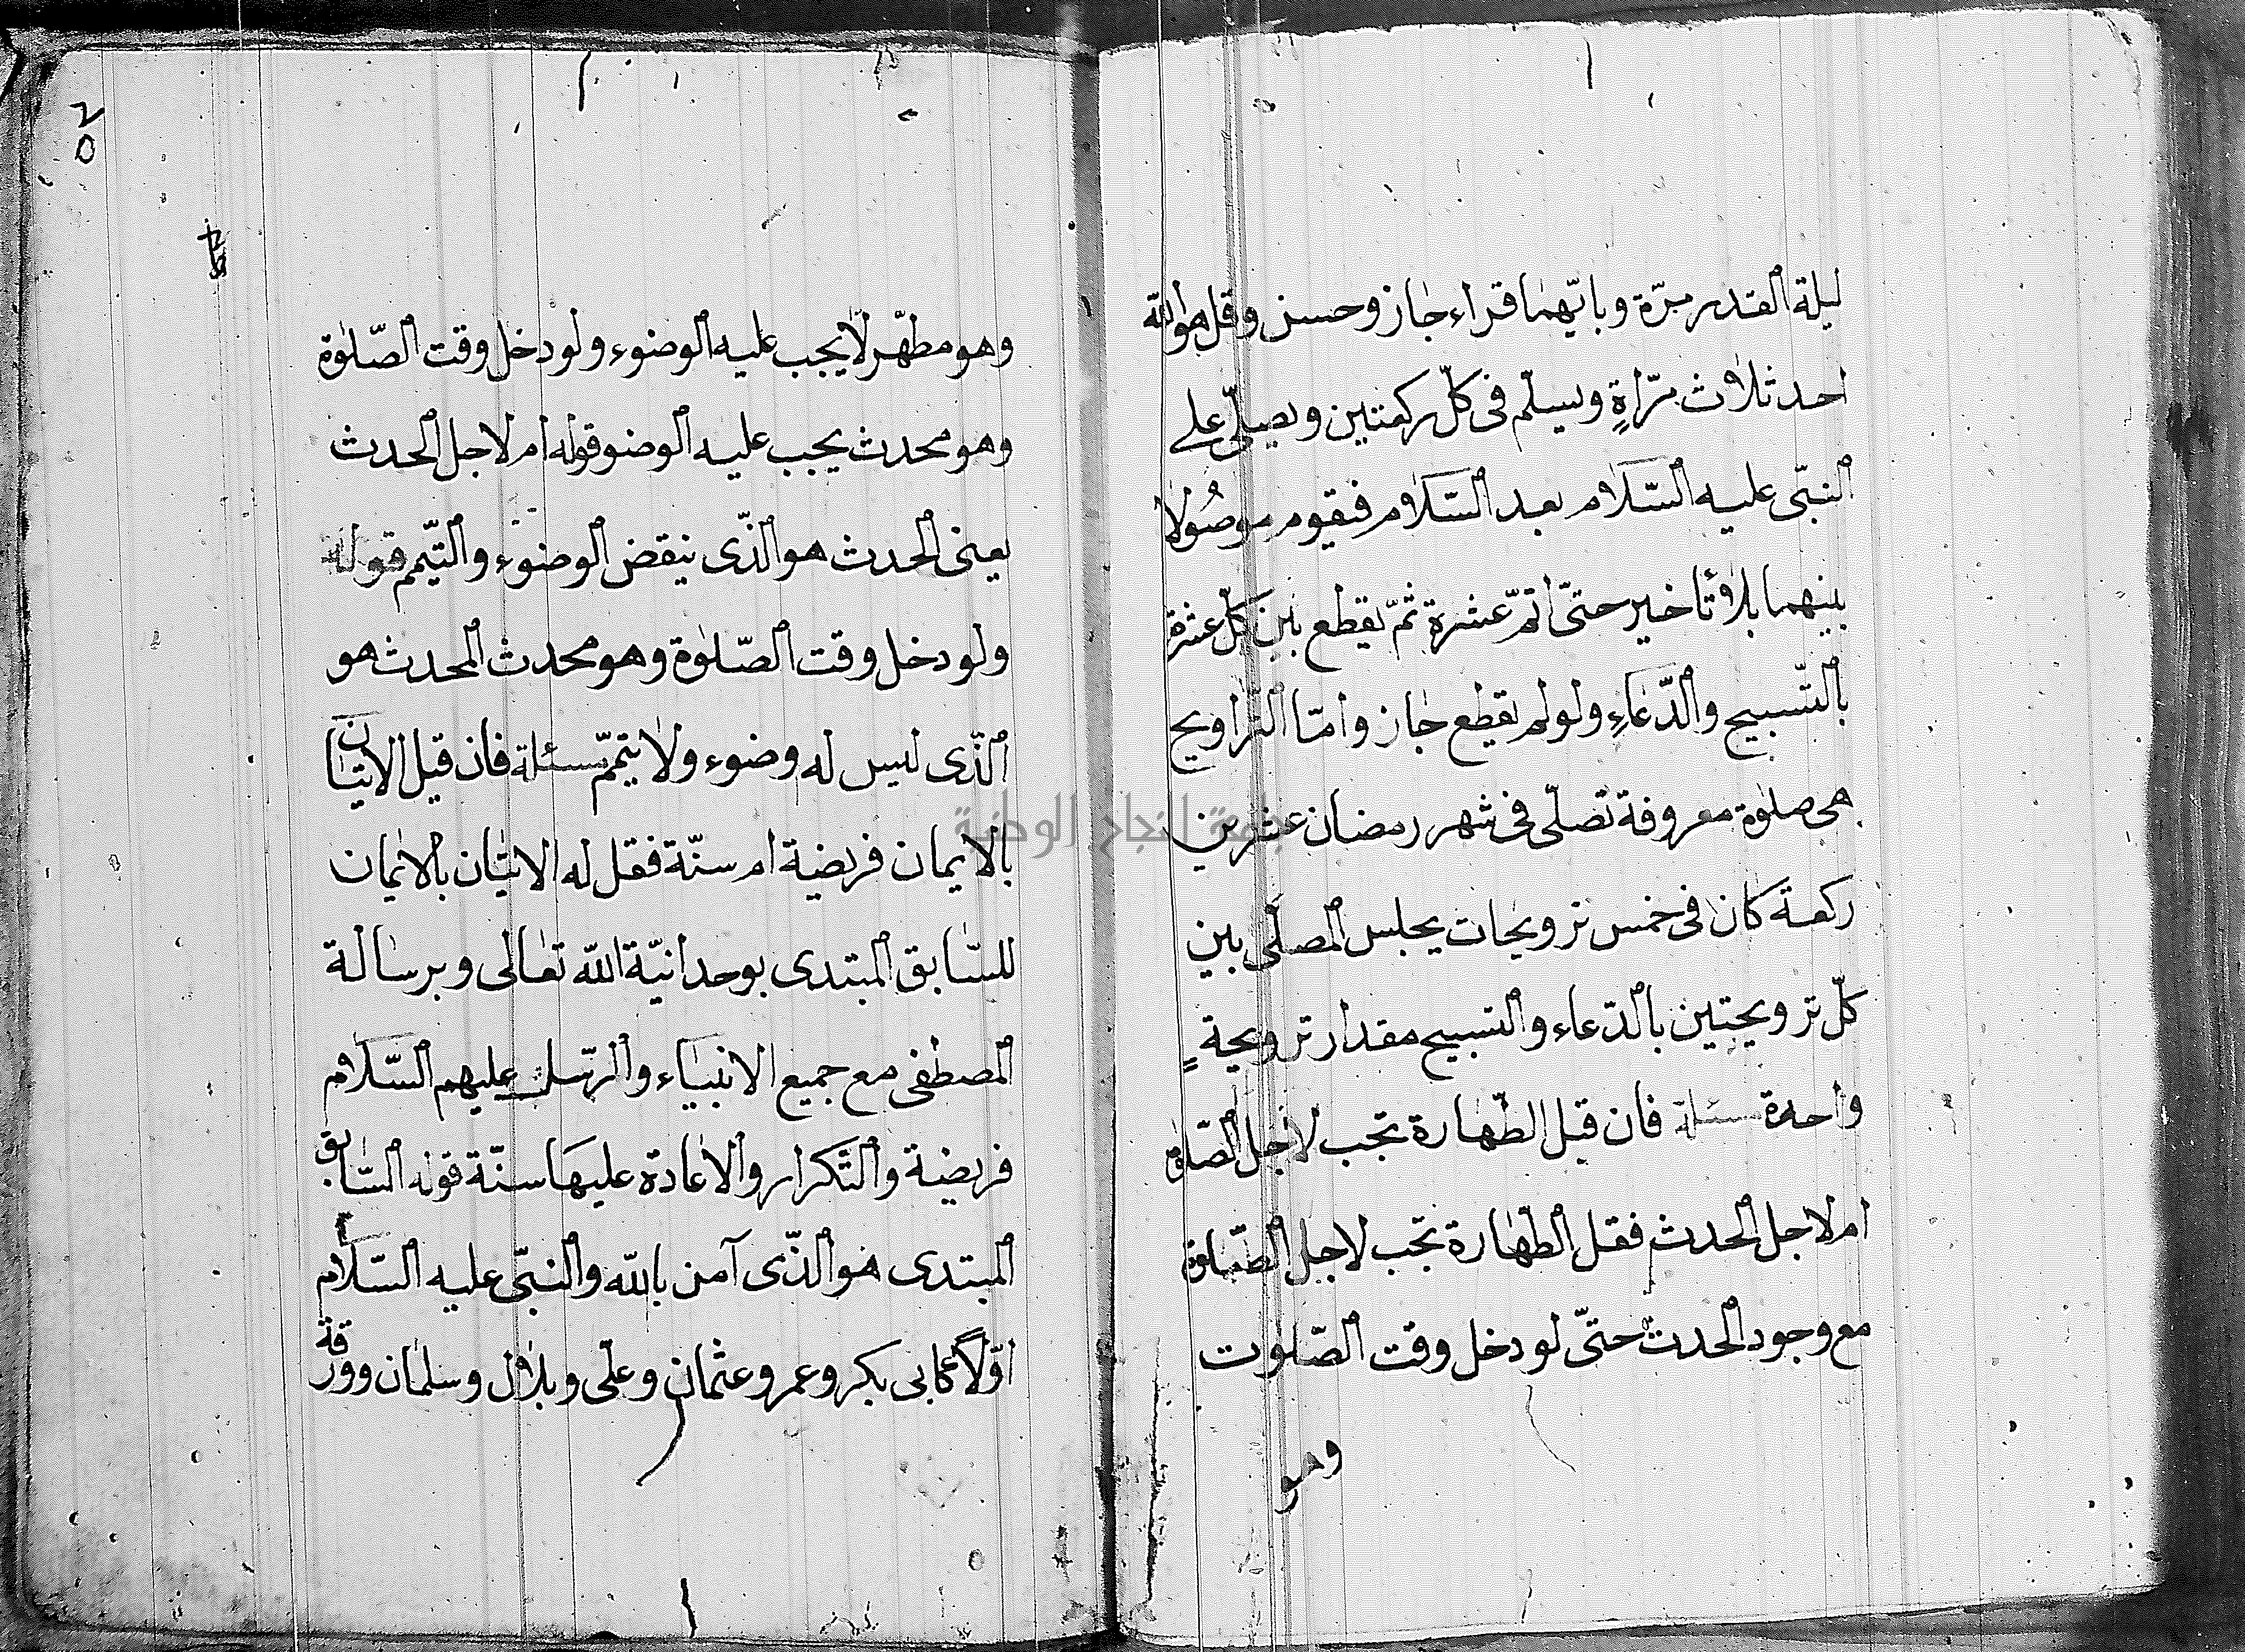 ليلة القدر مرّة وبايّهما قراء جاز وحسن وقل هو الله
احد ثلاث مرّاةٍ ويسلّم فى كلّ ركعتين ويصلّى على
النبّى عليه السّلام بعد السّلام فيقوم موصُولا
بينهما بلا تأخير حتىّ اتمّ عشرة ثمّ يقطع بين كلّ عشرة
بالتّسبيح والدّعاءِ ولو لم يقطع جاز وامّا التّراويح
هى صلوة معروفة تصلّى فى شهر رمضان عشرين
ركعة كان فى خمس ترويحات يجلس المصلّى بين
كلّ ترويحتين بالدّعاء والتسبيح مقدار ترويحةٍ
واحدة مسئلة فان قيل الطّهارة تجب لاجل الصّلوة
ام لاجل الحدث فقل الطّهارة تجب لاجل الصّلوة
مع وجود الحدث حتىّ لو دخل وقت الصّلوت
وهو
٢٥
وهو مطهّر لا يجب عليه الوضوء ولو دخل وقت الصّلوة
وهو محدث يجب عليه الوضو قوله ام لاجل الحدث
يعنى الحدث هو الذّى ينقض الوضوء والتّيمم قوله
ولو دخل وقت الصّلوة وهو محدث المحدث هو
الذّى ليس له وضوء ولا يتمّم مسئلة فان قيل الاتيان
بالايمان فريضة ام سنّة فقل له الاتيان بالايمان
للسّابق المبتدى بوحدانيّة الله تعالى وبرسالة
المصطفى مع جميع الانبياء والرّسل عليهم السّلام
فريضة والتّكرار والاعادة عليها سنّة قوله السّابق
المبتدى هو الذّى آمن بالله والنبّى عليه السّلام
اوّلاً كابى بكر وعمر وعثمان وعلّى وبلال وسلمان وورقة
جامعة النجاح الوطنية